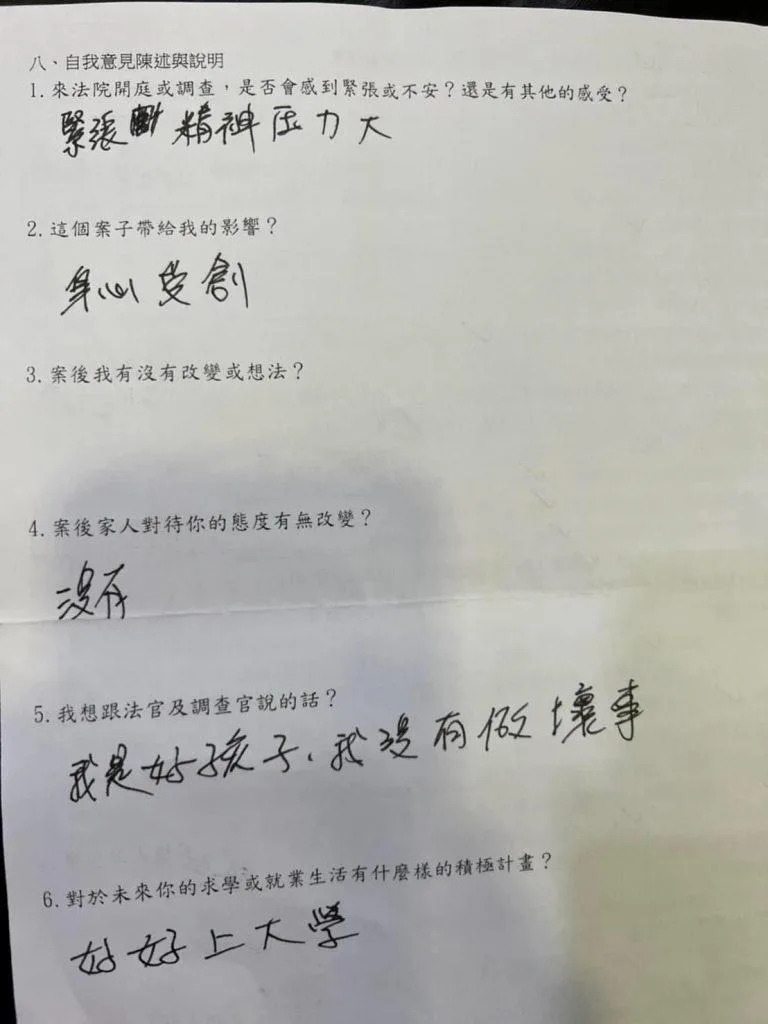 八、自我意見陳述與說明
1. 來法院開庭或調查，是否會感到緊張或不安？還是有其他的感受？
緊張 精神压力大
2. 這個案子帶給我的影響？
身心受創
3. 案後我有沒有改變或想法？
4. 案後家人對待你的態度有無改變？
沒有
5. 我想跟法官及調查官說的話？
我是好孩子、我沒有做壞事
6. 對於未來你的求學或就業生活有什麼樣的積極計畫？
好好上大學